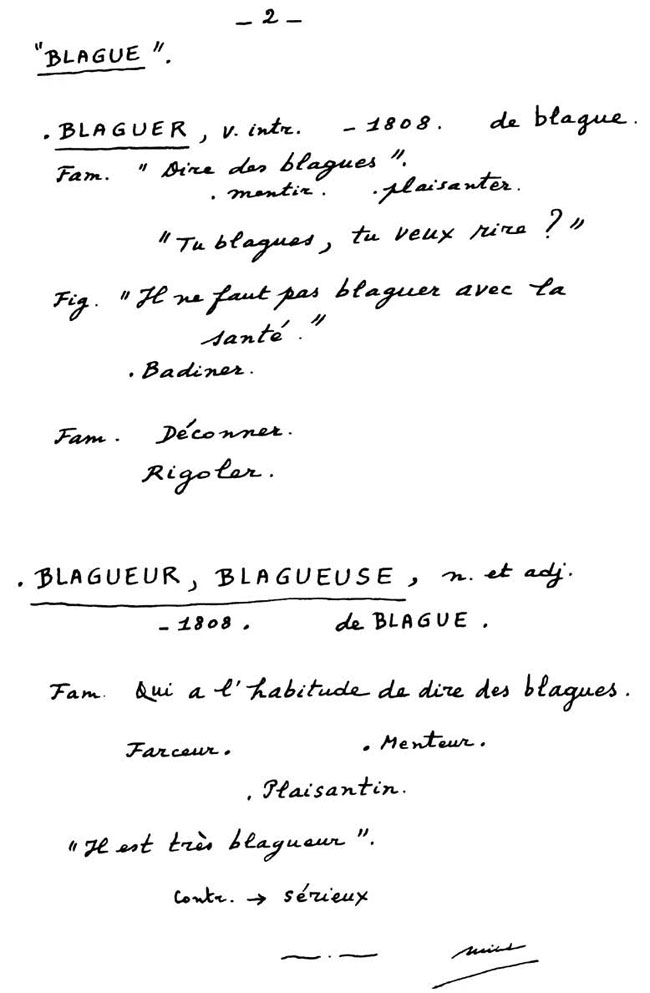 - 2 -
"BLAGUE".
. BLAGUER, v. intr. - 1808. de blague.
Fam. "Dire des blagues".
. mentir. . plaisanter.
"Tu blagues, tu veux rire ?"
Fig. "Il ne faut pas blaguer avec la
santé."
. Badiner.
Fam. Déconner.
Rigoler.
. BLAGUEUR, BLAGUEUSE, n. et adj.
- 1808. de BLAGUE.
Fam. Qui a l'habitude de dire des blagues.
Farceur. . Menteur.
. Plaisantin.
"Il est très blagueur".
Contr. → sérieux